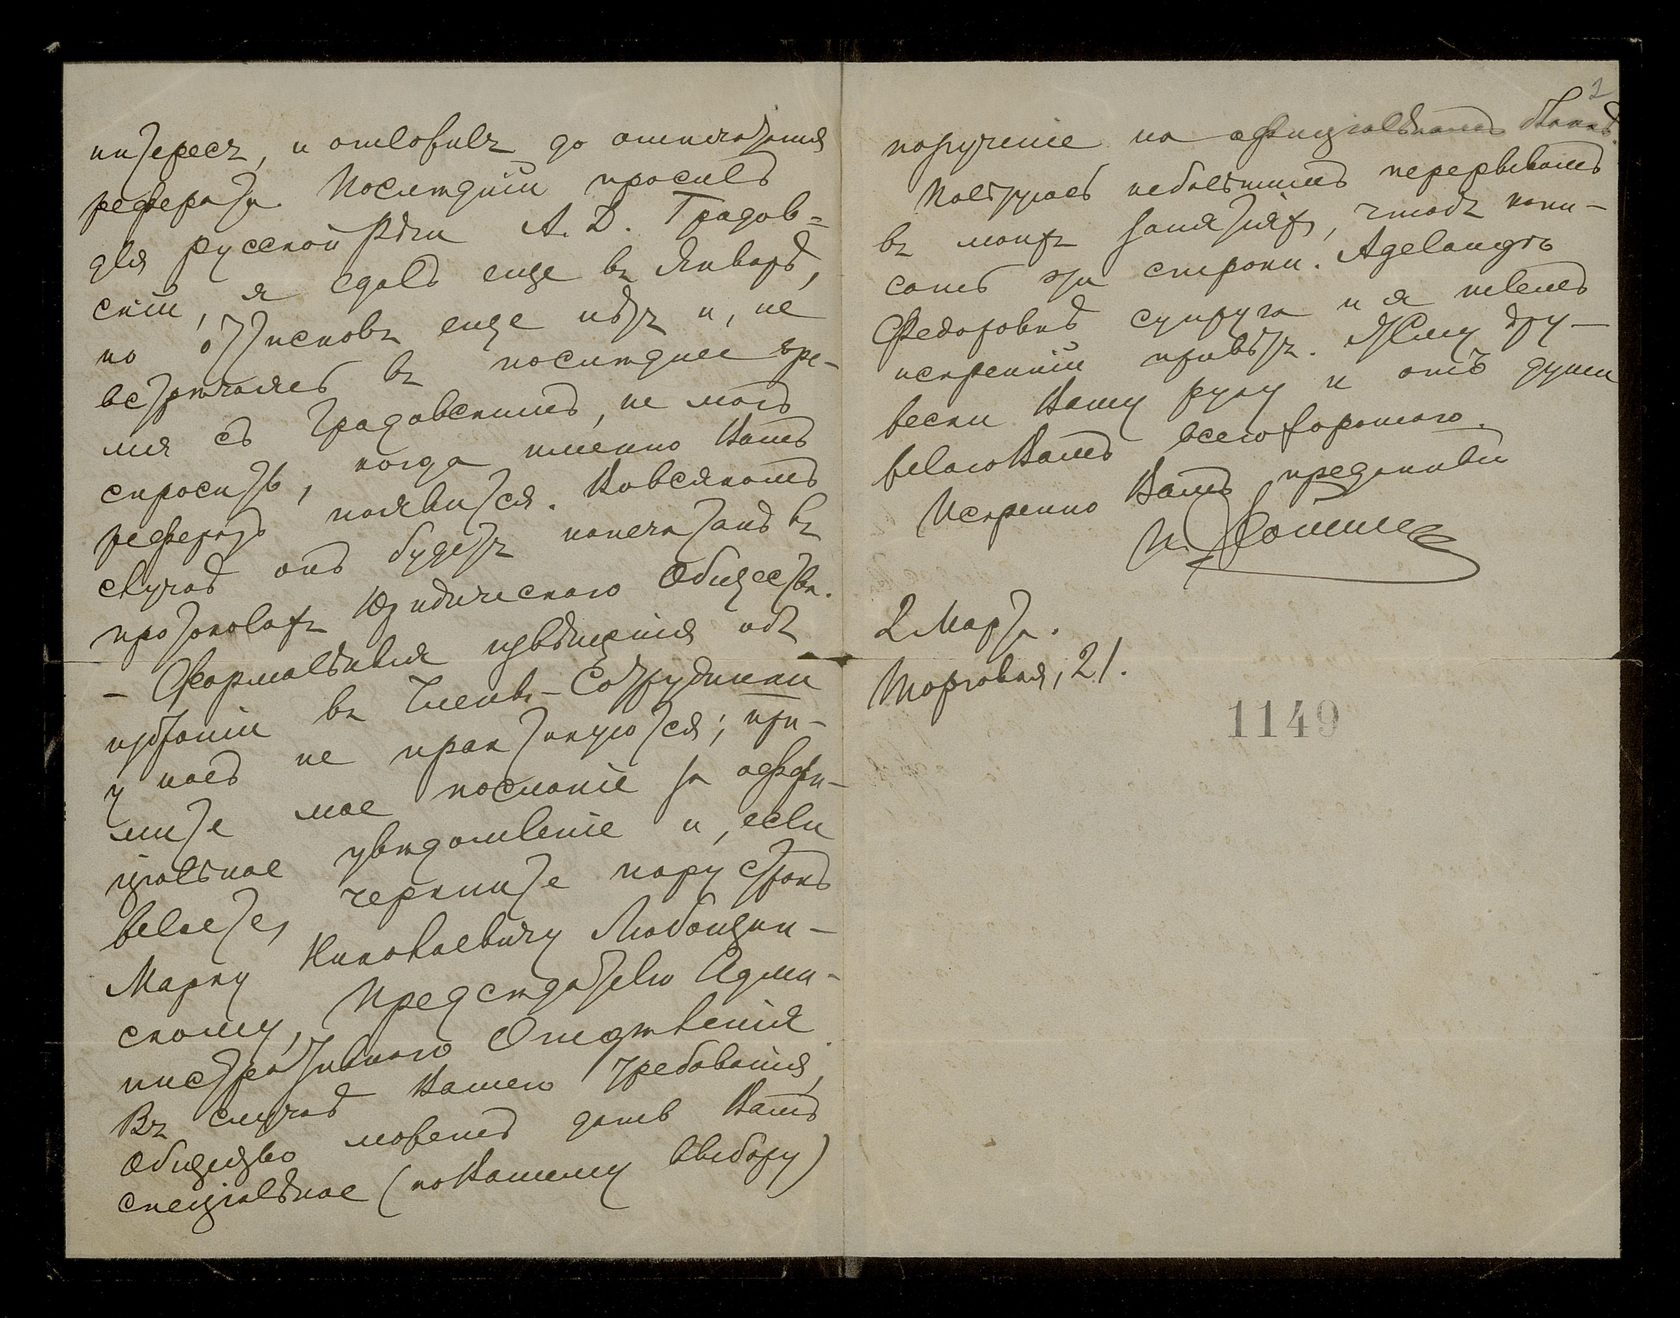 интересъ, и отложилъ до отпечатанія
реферата. Послѣдній просилъ
для русской Рѣчи А. Д. Градов-
скій, я сдалъ еще въ Январѣ,
но оттисковъ еще нѣтъ и, не
встрѣчаясь въ послѣднее вре-
мя съ Градовскимъ, не могъ
спросить, когда именно Вашъ
рефератъ появится. Во всякомъ
случаѣ онъ будетъ напечатанъ въ
протоколахъ Юридическаго Общества.
– Формальныя извѣщенія объ
избраніи въ Члены-Сотрудники
у насъ не практикуются; при-
мите мое посланіе за оффи-
ціальное увѣдомленіе и, если
желаете, черкните пару строкъ
Марку Николаевичу Любощин-
скому, Предсѣдателю Адми-
нистративнаго Отдѣленія
Въ случаѣ Вашего требованія,
Общество можетъ дать Вамъ
спеціальное (по Вашему выбору)
2
порученіе на оффиціальномъ бланкѣ.
Пользуюсь небольшимъ перерывомъ
въ моихъ занятіяхъ, чтобъ напи-
сать эти строки. Аделаидѣ
Федоровнѣ супруга и я шлемъ
искренній привѣтъ. Жму дру-
жески Вашу руку и отъ души
желаю Вамъ всего хорошаго.
Искренно Вамъ преданный
И.
2 Марта.
Торговая, 21.
1149